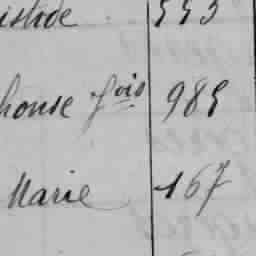 istide 553
honse fois 985
Marie 167